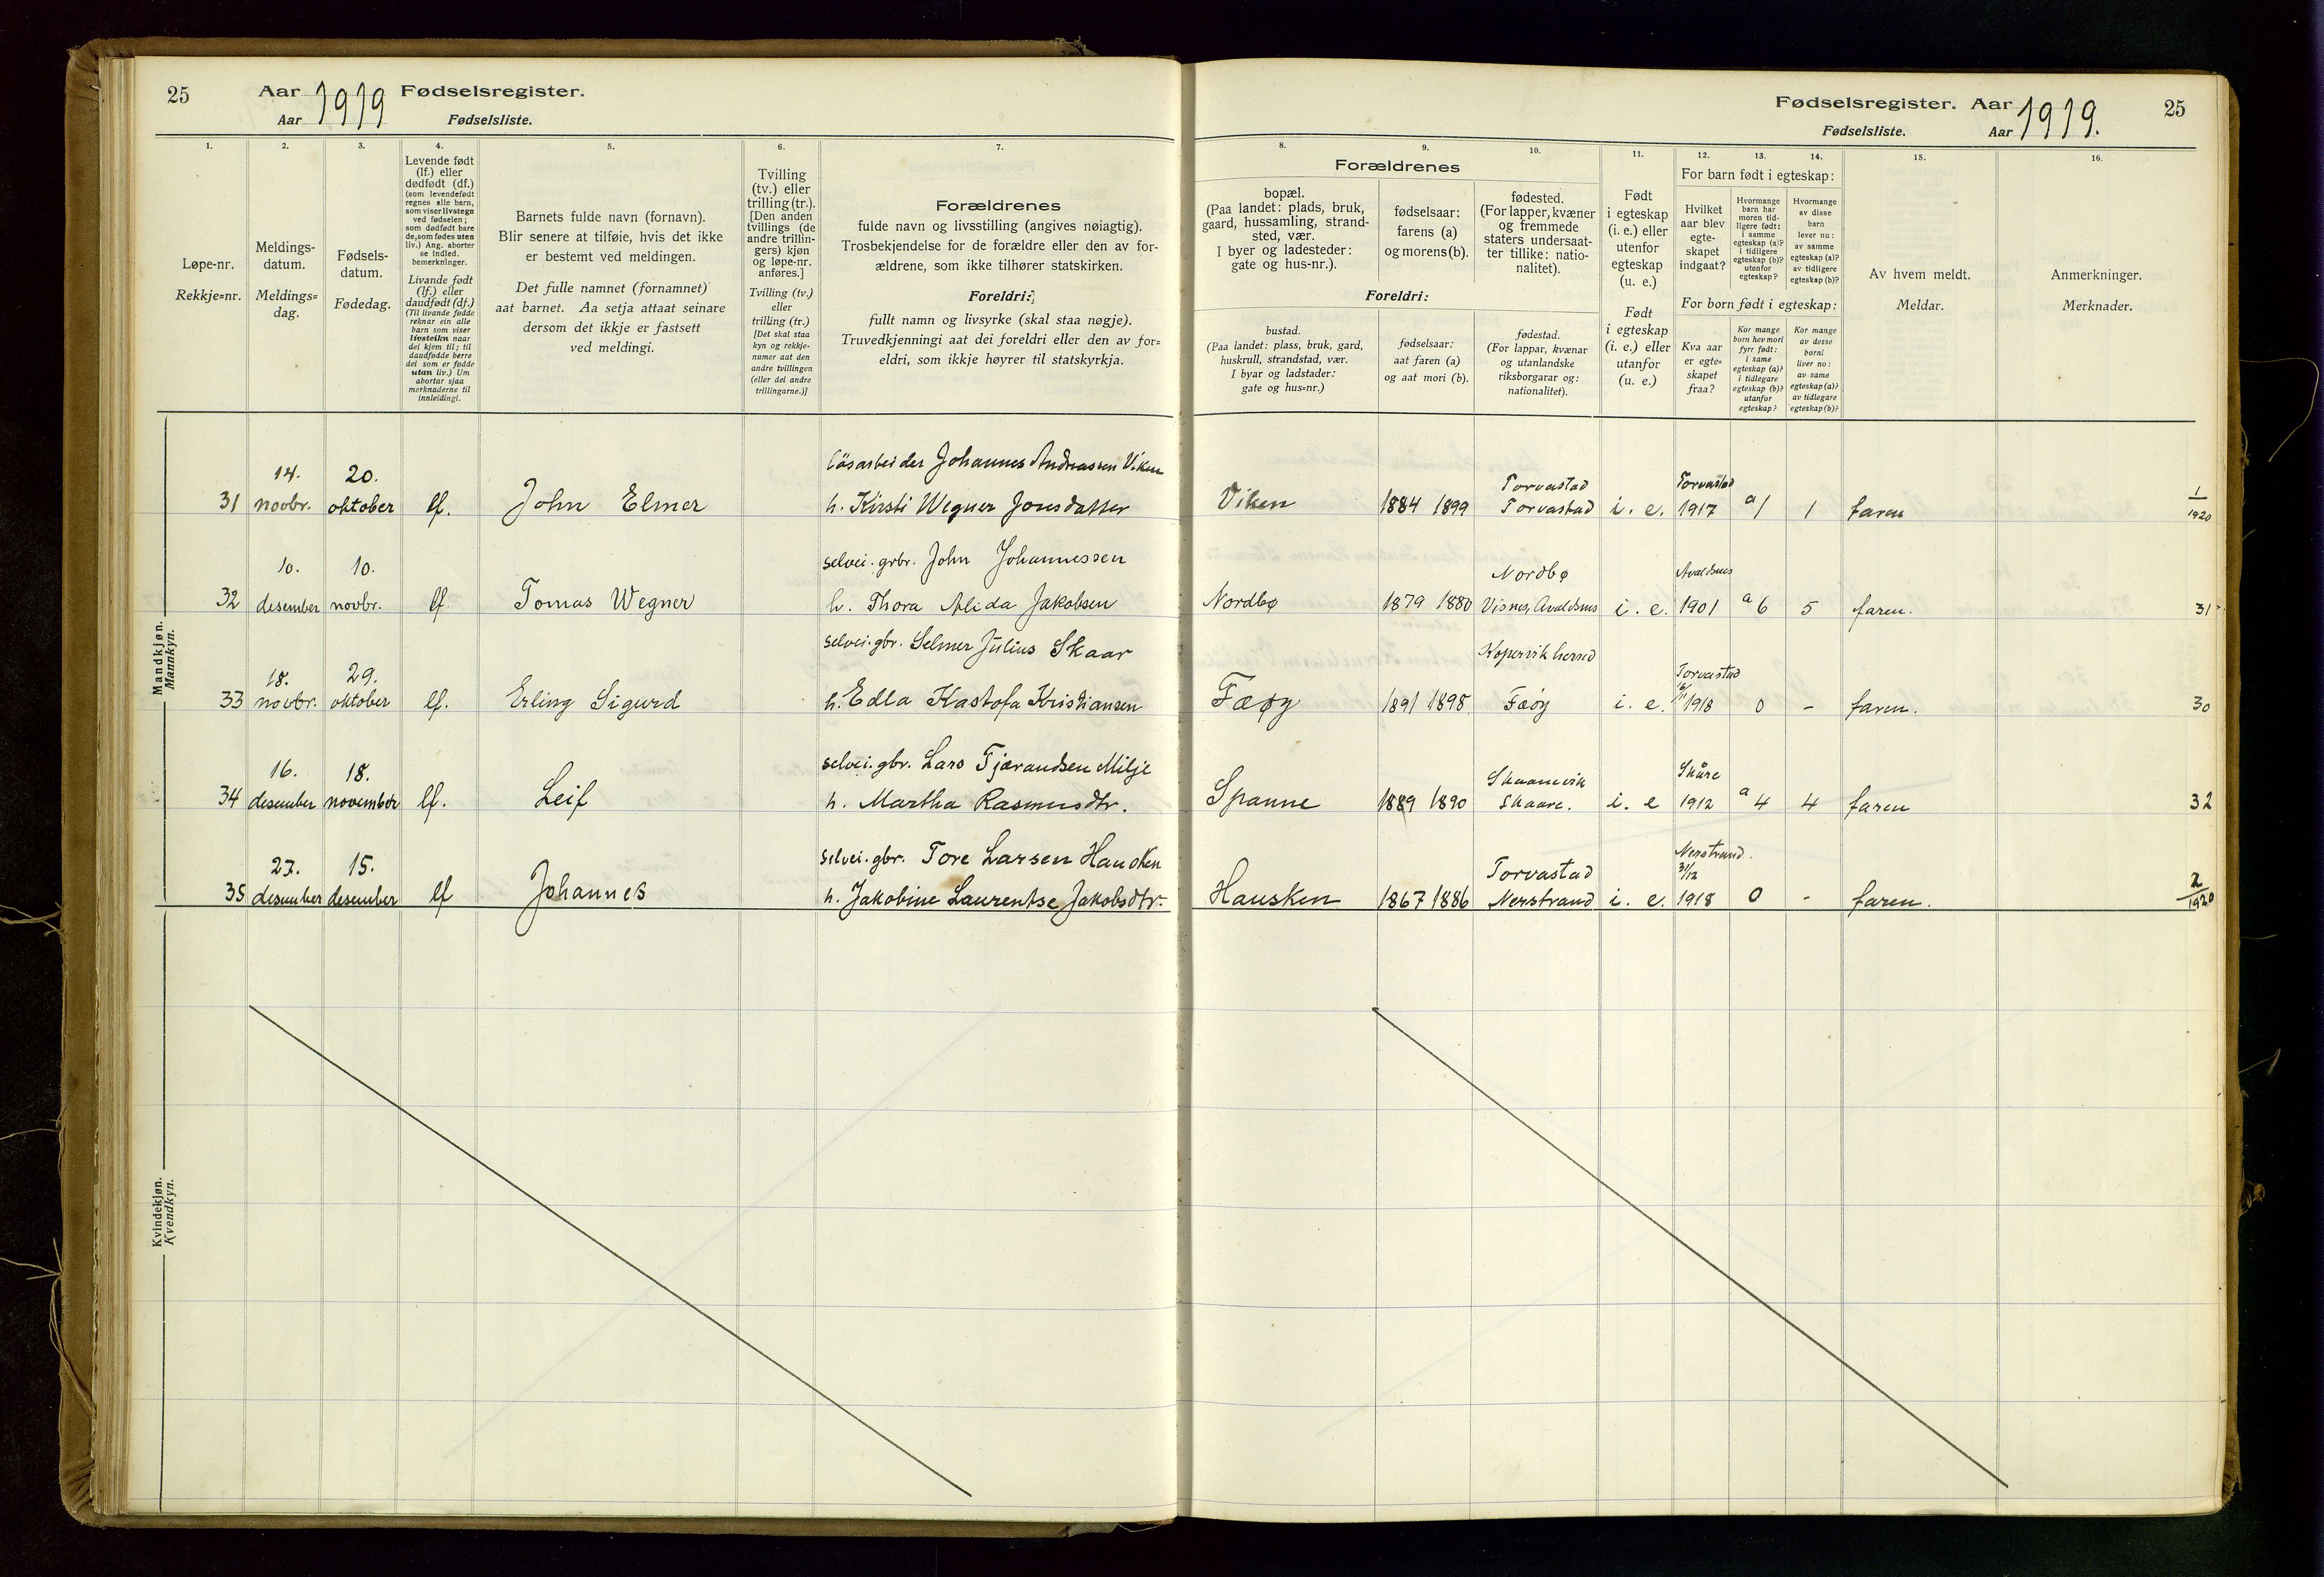 25
Aar 1919 Fødselsregister.
Aar Fødselsliste.
1.
2.
3.
4.
5.
6.
7.
Løpe-nr.
Rekkje=nr.
Meldings-
datum.
Meldings=
dag.
Fødsels-
datum.
Fødedag.
Levende født
(lf.) eller
dødfødt (df.)
(som levendefødt
regnes alle barn,
som viser livstegn
ved fødselen;
som dødfødt bare
de, som fødes uten
liv.) Ang. aborter
se indled.
bemerkninger.
Livande født
(lf.) eller
daudfødt (df.)
(Til livande fødde
reknar ein alle
barn som viser
livsteikn naar
dei kjem til; til
daudfødde berre
dei som er fødde
utan liv.) Um
abortar sjaa
merknaderne til
innleidingi.
Barnets fulde navn (fornavn).
Blir senere at tilføie, hvis det ikke
er bestemt ved meldingen.
Det fulle namnet (fornamnet)
aat barnet. Aa setja attaat seinare
dersom det ikkje er fastsett
ved meldingi.
Tvilling
(tv.) eller
trilling (tr.).
[Den anden
tvillings (de
andre trillin-
gers) kjøn
og løpe-nr.
anføres.]
Tvilling (tv.)
eller
trilling (tr.)
[Det skal staa
kyn og rekkje-
numer aat den
andre tvillingen
(eller dei andre
trillingarne.)]
Forældrenes
fulde navn og livsstilling (angives nøiagtig).
Trosbekjendelse for de forældre eller den av for-
ældrene, som ikke tilhører statskirken.
Foreldri:
fullt namn og livsyrke (skal staa nøgje).
Truvedkjenningi aat dei foreldri eller den av for=
eldri, som ikkje høyrer til statskyrkja.
Mandkjøn.
Mannkyn.
14. 20. Løsarbeider Johannes Andreassen Viken
31 novbr. oktober lf. John Elmer h. Kirsti Wegner Jonsdatter
10. 10. selvei. grbr. John Johannessen
32 desember novbr. lf. Tomas Wegner h. Thora Alida Jakobsen
18. 29. selvei. gbr. Selmer Julius Skaar
33 novbr. oktober lf. Erling Sigurd h. Edla Kastofa Kristiansen
16. 18. selvei. gbr. Lars Tjærandsen Milje
34 desember november lf. Leif h. Martha Rasmusdtr.
27. 15. selvei. gbr. Tore Larsen Hausken
35 desember desember lf Johannes h. Jakobine Laurentse Jakobsdtr.
Kvindekjøn.
Kvendkyn.
Fødselsregister. Aar 1919. 25
Fødselsliste. Aar
8.
9.
10.
11.
12.
13.
14.
15.
16.
Forældrenes
bopæl.
(Paa landet: plads, bruk,
gaard, hussamling, strand-
sted, vær.
I byer og ladesteder:
gate og hus-nr.).
fødselsaar:
farens (a)
og morens (b).
fødested.
(For lapper, kvæner
og fremmede
staters undersaat-
ter tillike: natio-
nalitet).
Foreldri:
bustad.
(Paa landet: plass, bruk, gard,
huskrull, strandstad, vær.
I byar og ladstader:
gate og hus=nr.)
fødselsaar:
aat faren (a)
og aat mori (b).
fødestad.
(For lappar, kvænar
og utanlandske
riksborgarar og:
nationalitet).
Født
i egteskap
(i. e.) eller
utenfor
egteskap
(u. e.)
Født
i egteskap
(i. e.) eller
utanfor
egteskap
(u. e.)
For barn født i egteskap:
Hvilket
aar blev
egte-
skapet
indgaat?
Hvormange
barn har
moren tid-
ligere født:
i samme
egteskap (a)?
i tidligere
egteskap (b)?
utenfor
egteskap?
Hvormange
av disse
barn
lever nu:
av samme
egteskap (a)?
av tidligere
egteskap (b)?
For born født i egteskap:
Kva aar
er egte=
skapet
fraa?
Kor mange
born hev mori
fyrr født:
i same
egteskap (a)?
i tidlegare
egteskap (b)?
utanfor
egteskap?
Kor mange
av desse
borni
liver no:
av same
egteskap (a)?
av tidlegare
egteskap (b)?
Av hvem meldt.
Meldar.
Anmerkninger.
Merknader.
Torvastad Torvastad 1
Viken 1884 1899 Torvastad i. e. 1917 a 1 1 faren 1920
Nordbø Avaldsnes
Nordbø 1879 1880 Visnes, Avaldsnes i. e. 1901 a 6 5 faren. 31
Kopervik herred Torvastad
Fæøy 1891 1898 Fæøy i. e. 16/11 1918 0 - faren. 30
Skaanevik Skåre
Spanne 1889 1890 Skaare. i. e 1912 a 4 4 faren 32
Torvastad Nerstrand. 31/12 2
Hausken 1867 1886 Nerstrand i. e. 1918 0 - faren. 1920